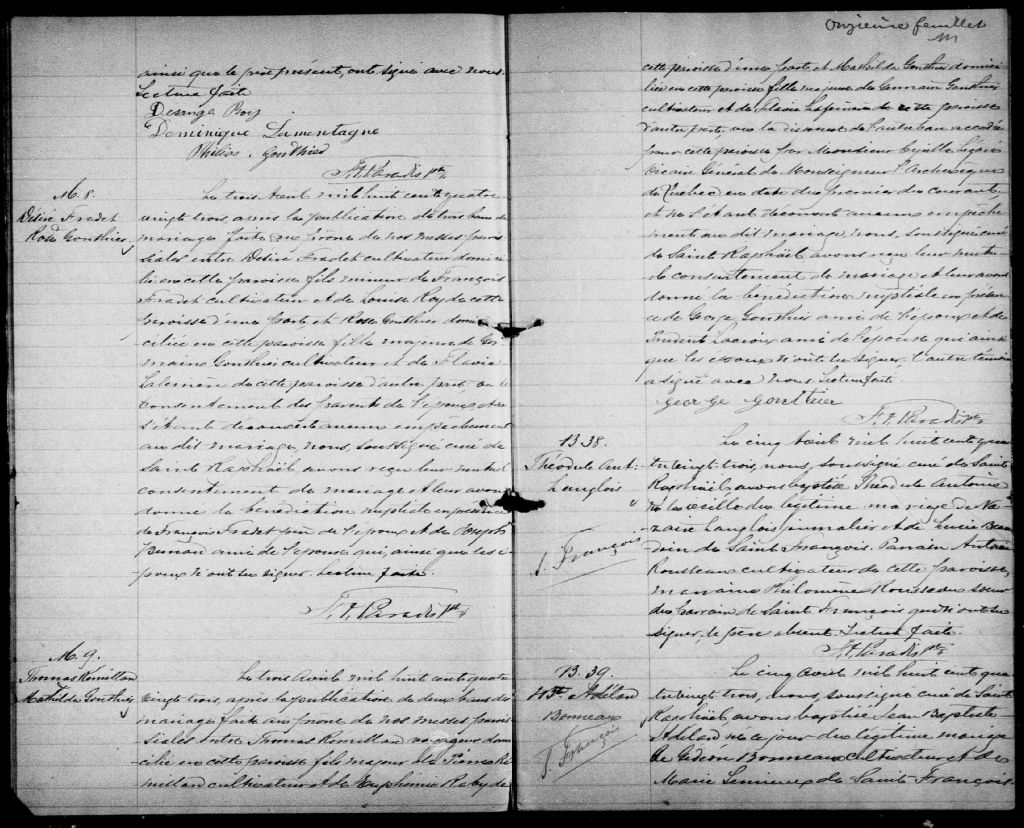 ainsi que le père présent, ont signé avec nous.
Lecture faite
Desange Roy
Dominique Lamontagne
Philias Gouthier
F. X. Paradis ptre
M. 8.
Désiré Fradet
Rose Gonthier
Le trois Avril mil huit cent quatre
vingt trois après la publication de trois bans de
mariage faite au prône de nos messes parois
siales entre Désiré Fradet cultivateur domici
lié en cette paroisse fils mineur de François
Fradet cultivateur et de Louise Roy de cette
paroisse d'une part et Rose Gonthier domi
ciliée en cette paroisse fille majeure de Ger
main Gonthier cultivateur et de Flavie
de cette paroisse d'autre part vu le
consentement des parents de l'époux et ne
s'étant découvert aucun empêchement
au dit mariage, nous, soussigné curé de
Sainte Raphaël, avons reçu leur mutuel
consentement de mariage et leur avons
donné la bénédiction nuptiale en présence
de François Fradet père de l'époux et de Joseph
ami de l'épouse qui, ainsi que les é
poux n'ont su signer. Lecture faite.
F. X. Paradis ptre
M. 9.
Thomas Rémillard
Mathilde Gonthier
Le trois Avril mil huit cent quatre
vingt trois, après la publication de deux bans de
mariage faite au prône de nos messes parois
siales entre Thomas Rémillard voyageur domi
cilié en cette paroisse fils majeur de Pierre Ré
millard cultivateur et de Euphémie Raby de
Onzième feuillet
cette paroisse d'une part et Mathilde Gonthier domici
liée en cette paroisse fille majeure de Germain Gonthier
cultivateur et de Flavie de cette paroisse
d'autre part, vu la dispense de l'autre ban accordée
pour cette paroisse par Monsieur Cyrille Légaré
Vicaire Général de Monseigneur l'Archevêque
de Québec en date du premier du courant,
et ne s'étant découvert aucun empêche
ment au dit mariage, nous, soussigné curé
de Sainte Raphaël avons reçu leur mutuel
consentement de mariage et leur avons
donné la bénédiction nuptiale en présen
ce de George Gonthier ami de l'époux et de
Prudent Lacroix ami de l'épouse qui ainsi
que les époux n'ont su signer. L'autre témoin
a signé avec nous. Lecture faite.
george gonthier
F. X. Paradis ptre
B. 38.
Théodule Ant.
Langlois
S. François
Le cinq Avril mil huit cent qua
tre vingt-trois, nous, soussigné curé de Saint
Raphaël, avons baptisé Théodule Antoine
né la veille du légitime mariage de Na
zaire Langlois journalier et de Lucie Beau
din de Saint François. Parrain Antoine
Rousseau cultivateur de cette paroisse,
marraine Philomène Rousseau soeur
du parrain de Saint François qui n'ont su
signer, le père absent. Lecture faite.
F. X. Paradis ptre
B. 39.
J. Bte Adélard
Bonneau
S. François
Le cinq Avril mil huit cent qua
tre vingt trois, nous, soussigné curé de Saint
Raphaël, avons baptisé Jean Baptiste
Adélard né ce jour du légitime mariage
de Gédéon Bonneau cultivateur et de
Marie Lemieux de Saint François